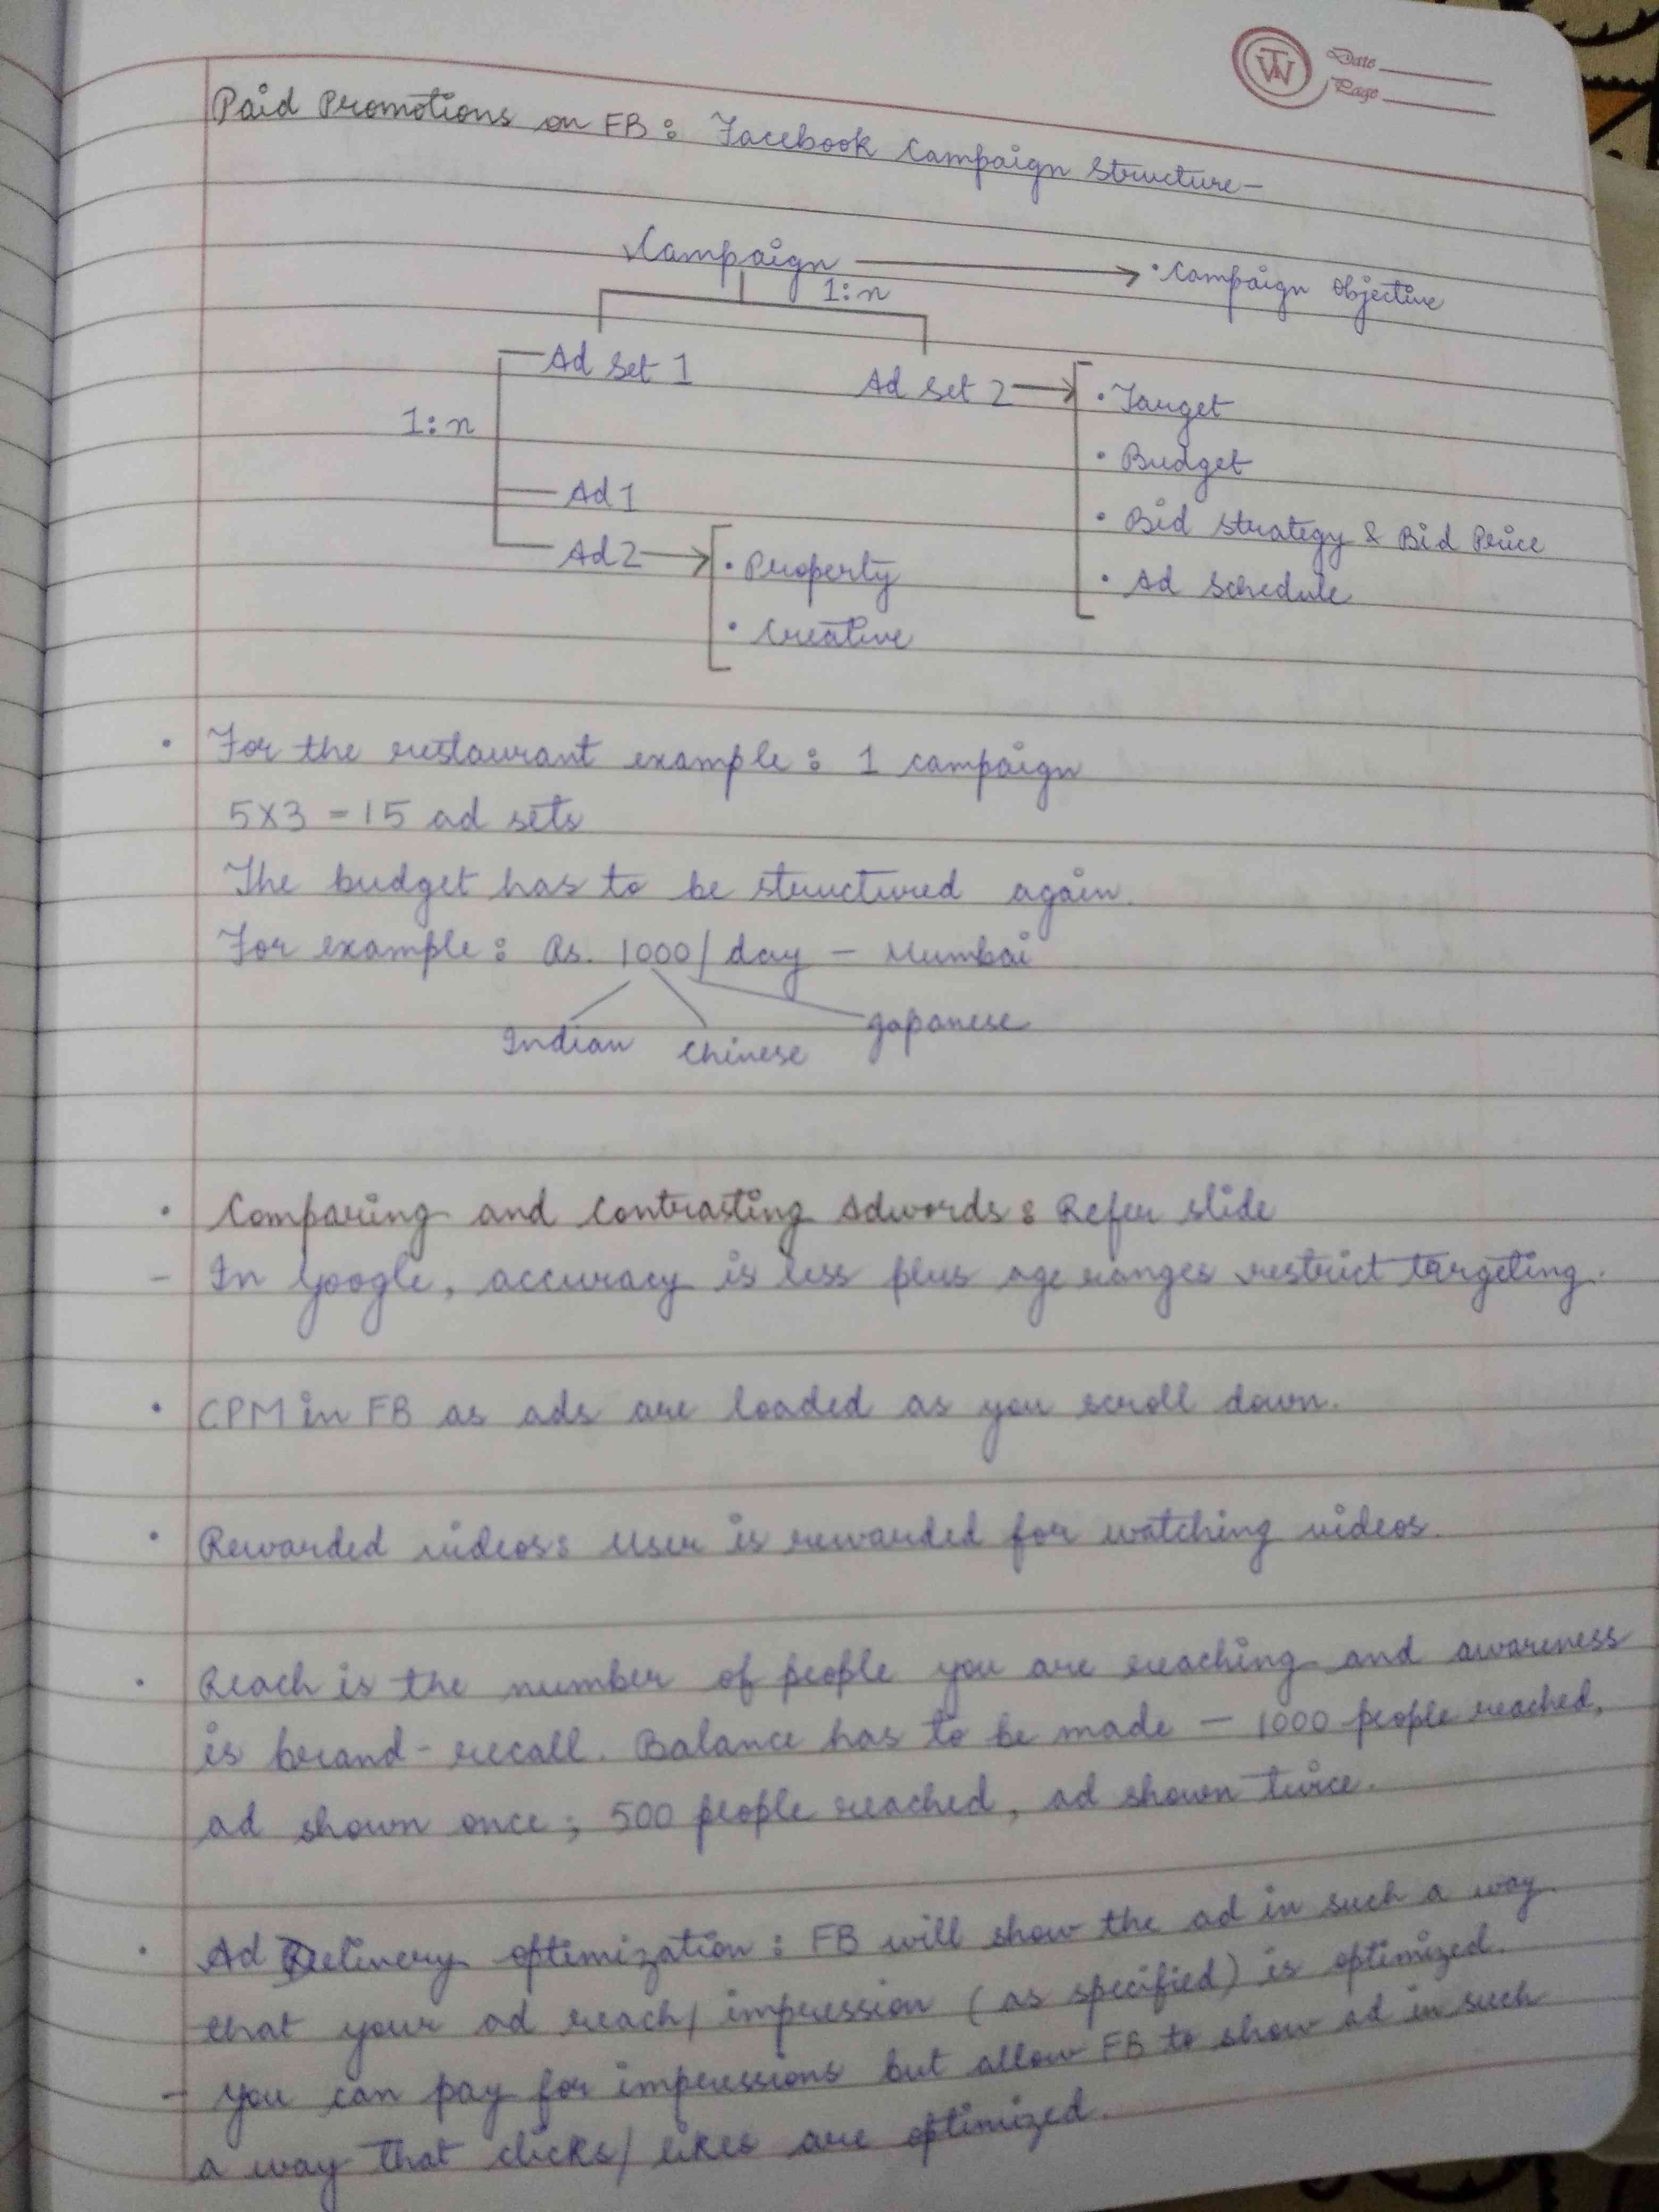 TW
Date
Page
Paid Promotions on FB: Facebook Campaign Structure-
Campaign → • Campaign Objective
1:n
Ad Set 1
Ad Set 2 → • Target
1:n
• Budget
Ad 1
• Bid Strategy & Bid Price
Ad 2 → • Property
• Ad Schedule
• Creative
• For the restaurant example: 1 campaign
5x3 = 15 ad sets
The budget has to be structured again.
For example: Rs. 1000/day - Mumbai
Indian Chinese Japanese
• Comparing and Contrasting Adwords: Refer slide
- In Google, accuracy is less plus age ranges restrict targeting.
• CPM in FB as ads are loaded as you scroll down.
• Rewarded videos: User is rewarded for watching videos.
• Reach is the number of people you are reaching and awareness
is brand-recall. Balance has to be made - 1000 people reached,
ad shown once; 500 people reached, ad shown twice.
• Ad Delivery optimization: FB will show the ad in such a way
that your ad reach/impression (as specified) is optimized.
- You can pay for impressions but allow FB to show ad in such
a way that clicks/likes are optimized.